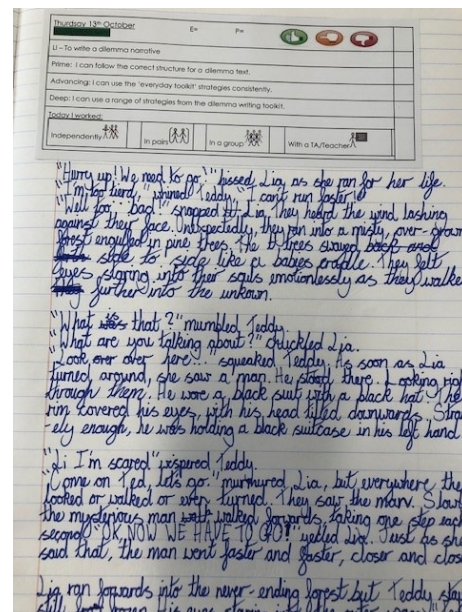 Thursday 13th October E= P=
LI – To write a dilemma narrative
Prime: I can follow the correct structure for a dilemma text.
Advancing: I can use the 'everyday toolkit' strategies consistently.
Deep: I can use a range of strategies from the dilemma writing toolkit.
Today I worked:
Independently In pairs In a group With a TA/Teacher
"Hurry up! We need to go!" hissed Lia, as she ran for her life.
"I'm too tierd," whined Teddy, "I can't run faster!"
"Well too... bad!" snapped Lia. They heard the wind lashing
against they face. Unexpectedly, they ran into a misty, over-grown
forest enguled in pine trees. The trees swayed back and
side to side like a babies cradle. They felt
eyes staring into their souls emotionlessly as they walke
further into the unkown.
"What was that?" mumbled Teddy.
"What are you talking about?" chuckled Lia.
"Look over here..." squeaked Teddy. As soon as Lia
turned around, she saw a man. He stood there. Looking rig
through them. He wore a black suit with a black hat. The
rim covered his eyes, with his head tilled downwards. Stra
-ely enough, he was holding a black suitcase in his left hand
"Li I'm scared" wispered Teddy.
"Come on Ted, let's go." murmured Lia, but everywhere the
looked or walked or even turned. They saw the man. Slow
the mysterious man walked forwards, taking one step eac
second. "OK, NOW WE HAVE TO GO!" yelled Lia. Just as she
said that, the man went faster and faster, closer and clos
Lia ran forwards into the never-ending forest but Teddy stay